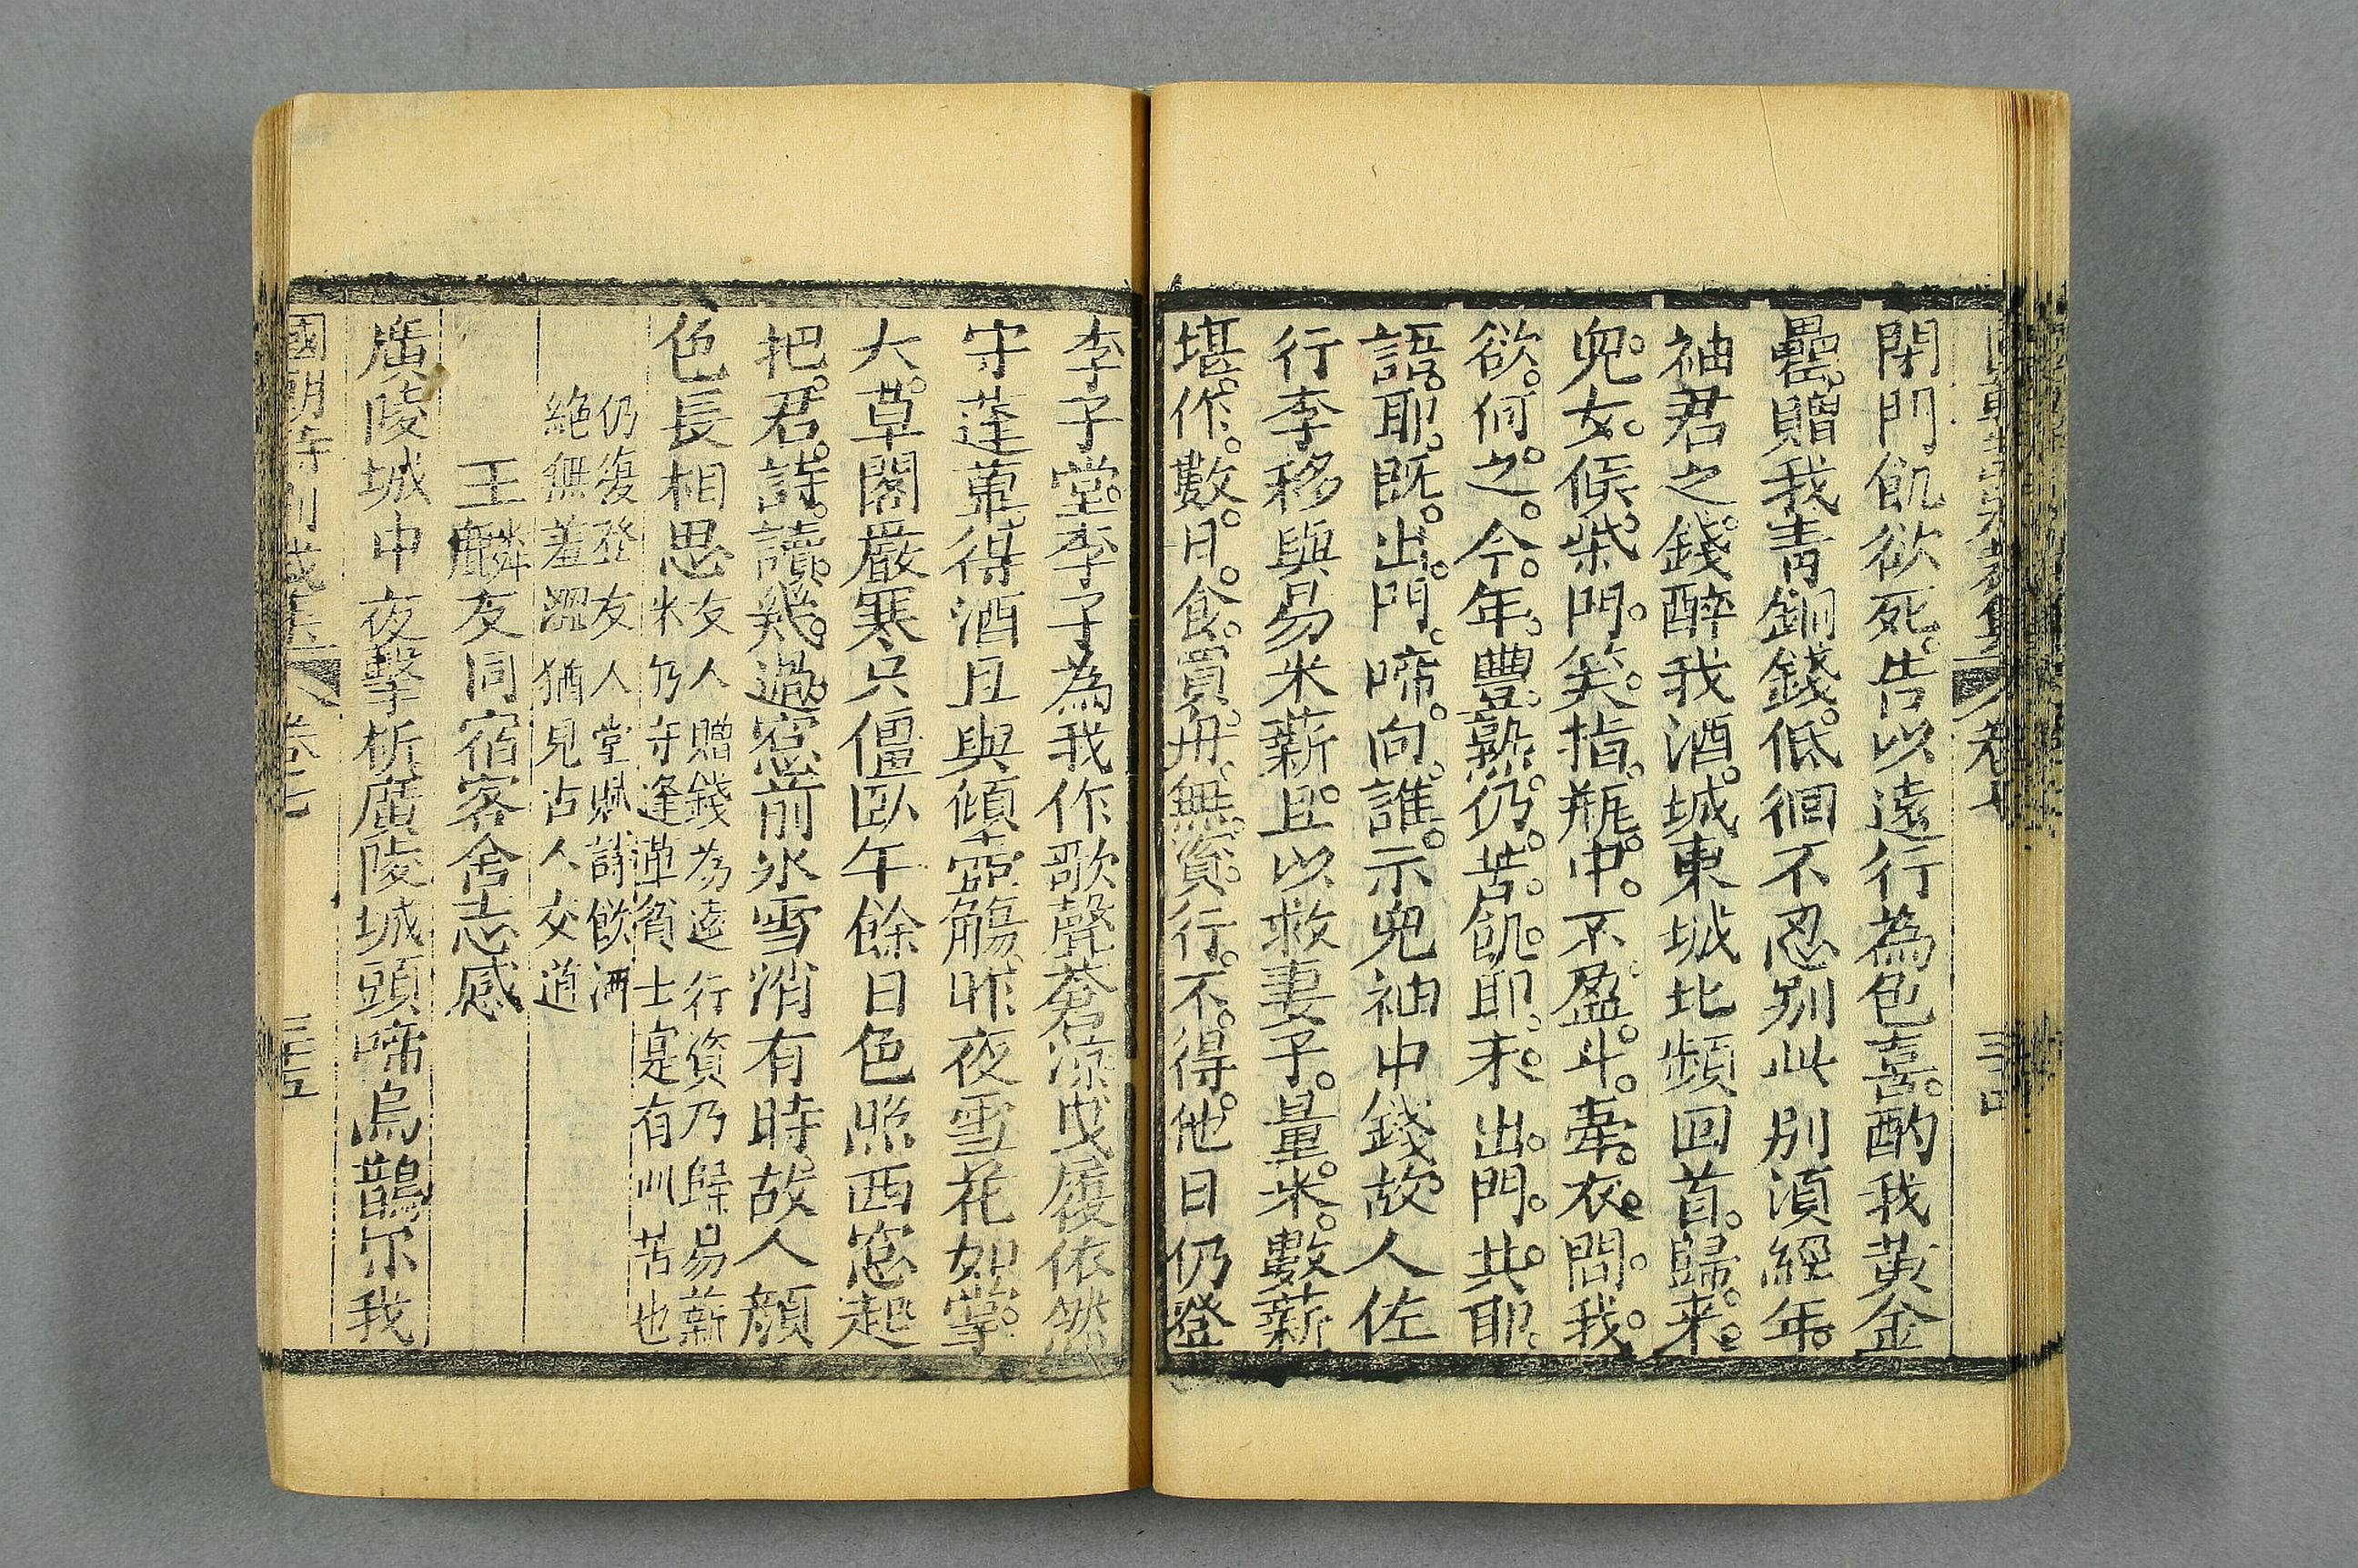 閉門飢欲死告以遠行為色喜酌我黃金
罍贈我青銅錢低徊不忍別此別湏經年
袖君之錢醉我酒城東城北頻回首歸来
兒女候柴門笑指瓶中不盈斗牽衣問我
欲何之今年豐熟仍苦飢耶未出門共耶
語耶既出門啼向誰示兒袖中錢故人佐
行李移與易米薪且以救妻子量米數薪
堪作數日食買舟無資行不得他日仍登
李子堂李子為我作歌聲蒼涼戊屨依然
守蓬蓽得酒且與傾壺觴昨夜雪花如掌
大草閣嚴寒只僵臥午餘日色照西窓起
把君詩讀幾過窓前氷雪消有時故人顏
色長相思友人贈錢为遠行資乃歸易薪
米乃守逢蓽貧士寔有此苦也
仍復登友人堂賦詩飲酒
絕無羞澀猶見古人交道
王麟友同宿客舍志感
廣陵城中夜擊柝廣陵城頭啼烏鵲尔我
國朝詩別裁集 卷七 三十五